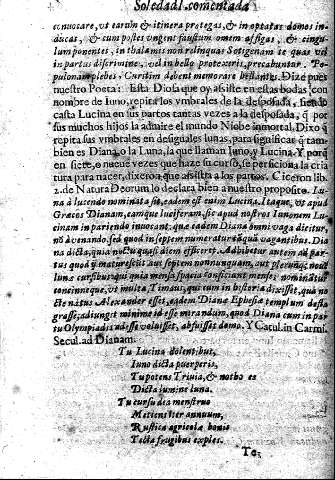 Soledad I. comentada
conuocare, vt earum & itinera protegas, & in optatas domos in-
ducas, & cum postes vngent faustum omen affigas, & cingu-
lum ponentes, in thalamis non relinquas Sotigenam te quas vel
in partus discrimine, vel in bello protexeris, precabuntur. Po-
pulonam plebes, Curitim debent memorare bellantes. Dize pues
nuestro Poeta: Esta Diosa que oy assiste en estas bodas, con
nombre de Iuno, repita los vmbrales de la desposada, siendo
casta Lucina en sus partos tantas vezes a la desposada, q̃ por
sus muchos hijos la admire el mundo Niobe inmortal. Dixo
repita sus vmbrales en desiguales lunas, para significar q̃ tam
bien es Diana, o la Luna, la que llaman Iuno y Lucina. Y porq̃
en siete, o nueue vezes que haze su curso, se perficiona la cria
tura para nacer, dixeron que assistia a los partos. Ciceron lib.
2. de Natura Deorum lo declara bien a nuestro proposito. Lu
na à lucendo nominata sit, eadem est enim Lucina. Itaque, vt apud
Græcos Dianam, eamque luciferam, sic apud nostros Iunonem Luci
nam in pariendo inuocant: quæ eadem Diana omniuaga dicitur,
nõ à venando, sed quod in septem numeratur è quã vagantibus. Dia
na dicta, quia noctu quasi diem efficeret. Adhibetur autem ad par
tus quod ij maturescunt aut septem nonnunquam, aut plerunque nouẽ
lunæ cursibus, qui quia mensa spacia conficiunt, menses nominãtur
concinneque, vt multa, Timæus, qui cum in historia dixisset, qua no
cte natus Alexander esset, eadem Dianæ Ephesiæ templum defla
grasse, adiungit minimè id esse mirandum, quod Diana cum in par
tu Olympiadis adesse voluisset, abfuisset domo. Y Catul. in Carmi.
Secul. ad Dianam.
Tu Lucina dolentibus,
Iuno dicta puerperis,
Tu potens Triuia, & notho es
Dicta lumine luna.
Tu cursu dea menstruo
Metiens iter annuum,
Rustica agricolæ bonis
Tecta frugibus exples.
Te,